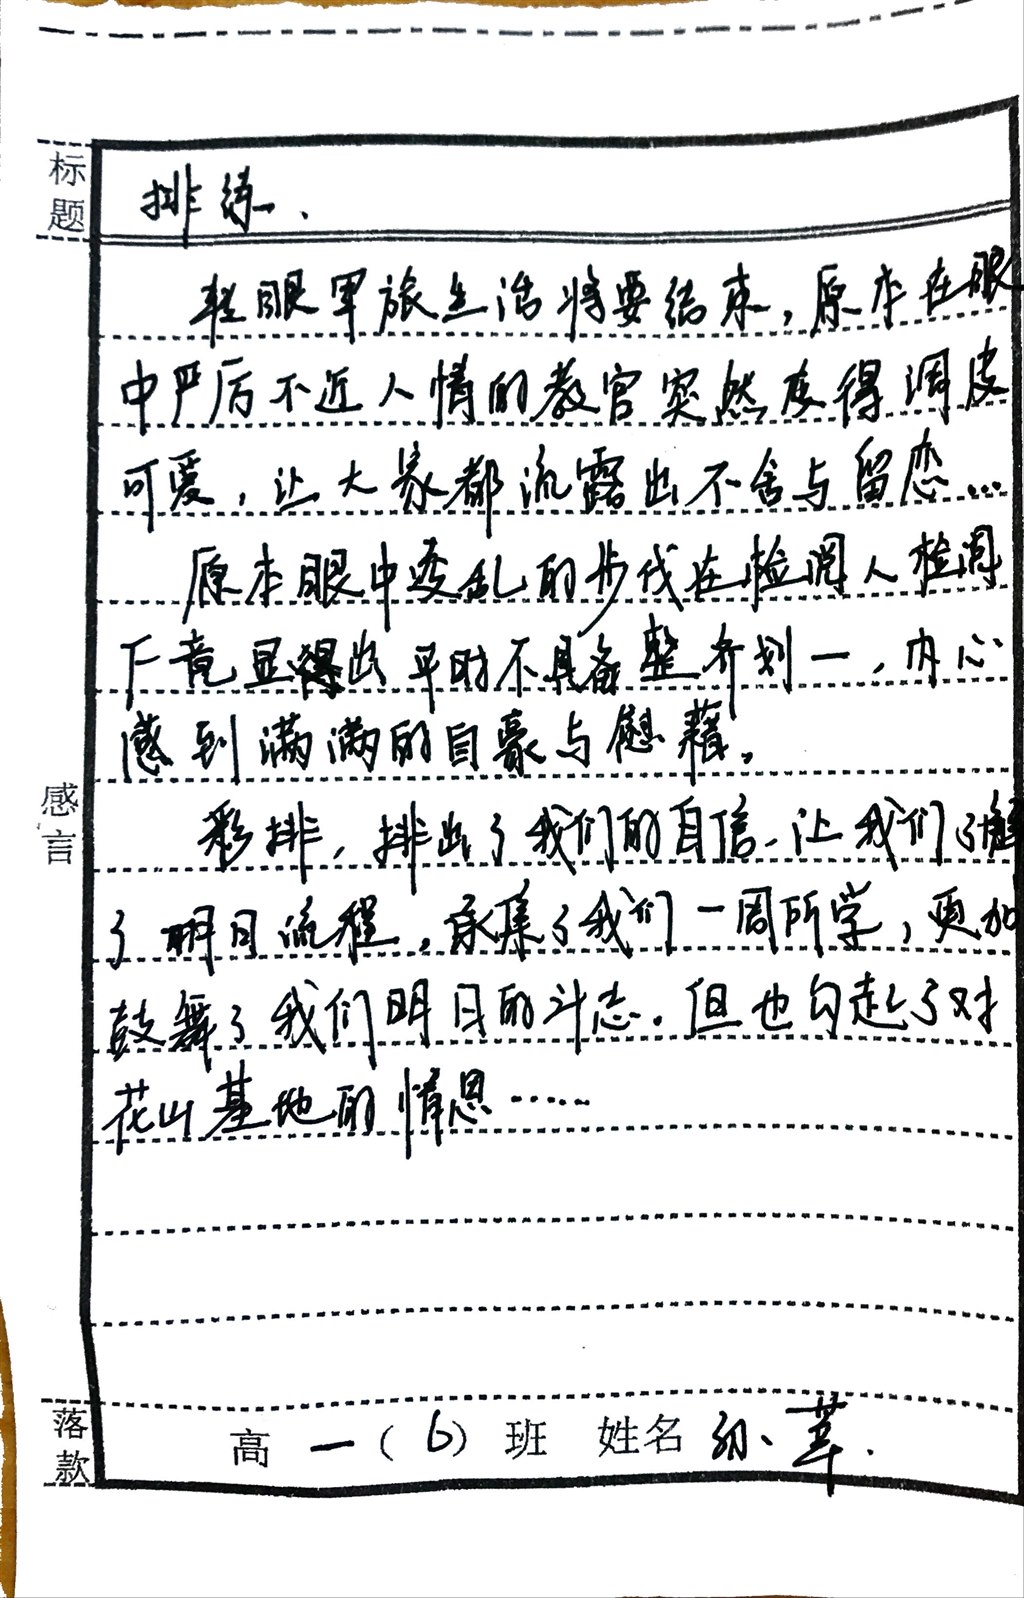 标题
排练.
转眼军旅生活将要结束,原本在眼
中严厉不近人情的教官突然变得调皮
可爱,让大家都流露出不舍与留恋...
原本眼中凌乱的步伐在检阅人检阅
下竟显得出平时不具备整齐划一,内心
感到满满的自豪与慰藉。
感言
彩排,排出了我们的自信、让我们了解
了明日流程,采集了我们一周所学,更加
鼓舞了我们明日的斗志.但也勾起了对
花山基地的情思……
落款
高一(6)班 姓名